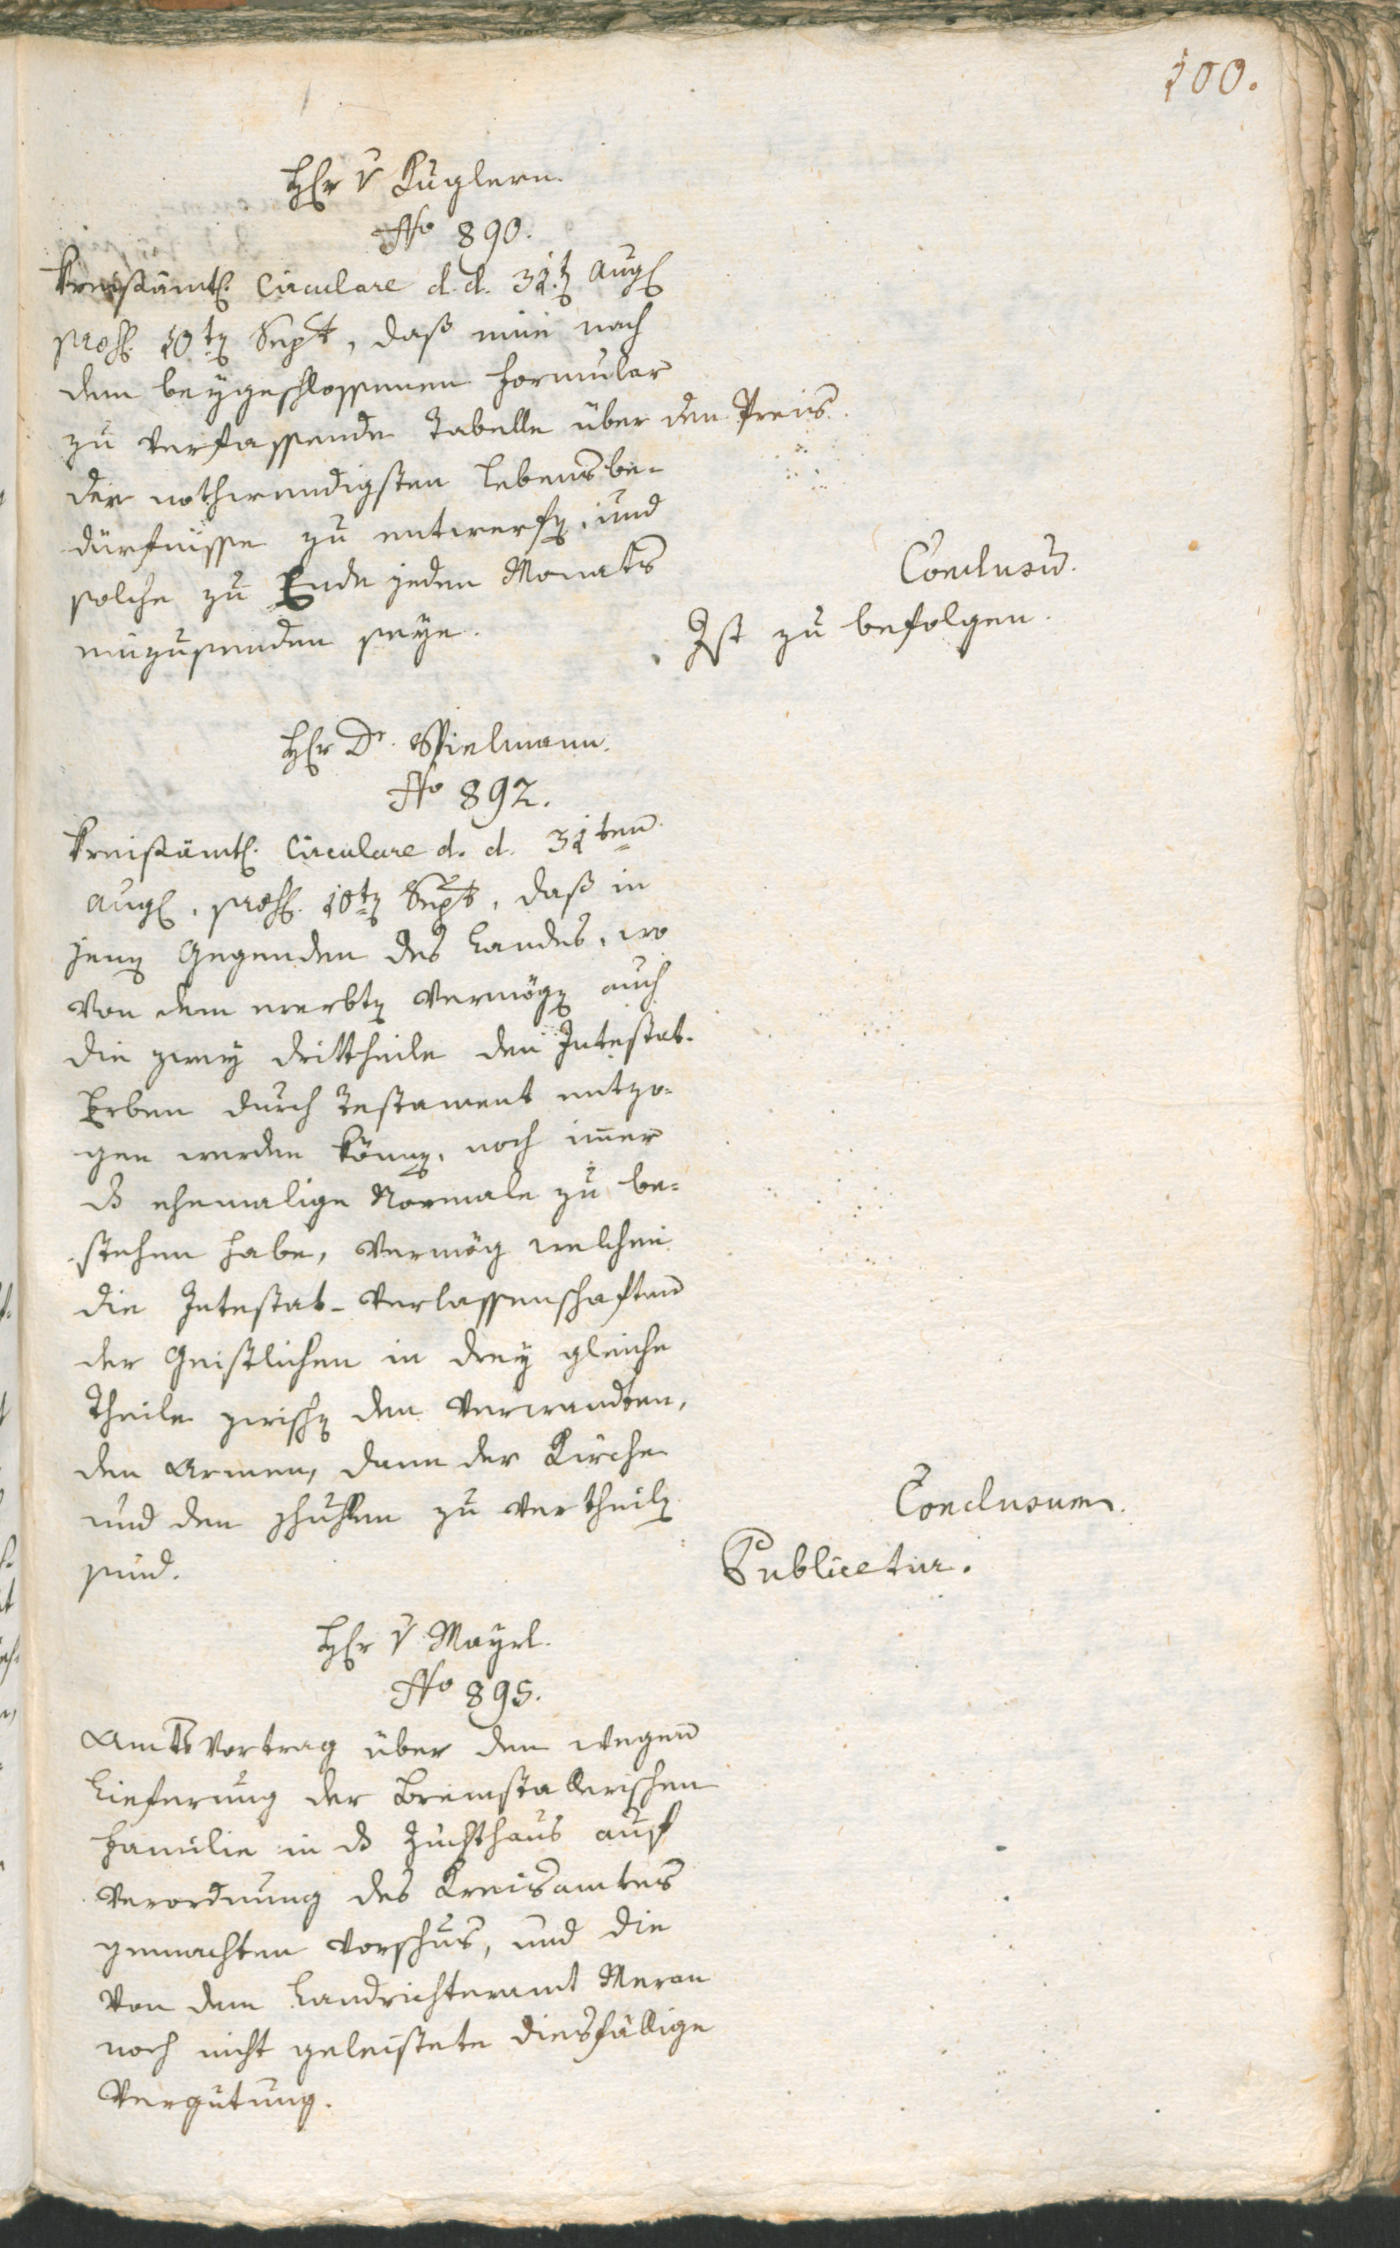 100.
Her v Kuglern.
No 890.
Kreisämtl. Circulare d. d. 31.t Aug
pros. 10t Sept, daß eine nach
dem beygeschlossenen Formular
zu verfassende Tabelle über den Preis
der nothwendigsten Lebensbe-
dürfnisse zu entwerfen, und
solche zu Ende jeden Monats
einzusenden seye.
Conclusum.
Ist zu befolgen.
Her Dr. Spielmann.
No 892.
Kreisämtl. Circulare d. d. 31ten
Aug, pros. 10t Sept, daß in
jenen Gegenden des Landes, wo
von dem ererbten Vermögen auch
die zwey Drittheile den Intestat-
Erben durch Testament entzo-
gen werden können, noch imer
das ehemalige Normale zu be-
stehen habe, vermög welchen
die Intestat-Verlassenschaften
der Geistlichen in drey gleiche
Theile zwischen den Verwandten,
den Armen, dann der Kirche
und den Schullen zu vertheilen
seind.
Conclusum.
Publicetur.
Her v Mayrl.
No 895.
Amts Vortrag über den wegen
Lieferung der Bremstallerischen
Familie in das Zuchthaus auf
Verordnung des Kreisamtes
gemachten Vorschus, und die
von dem Landrichteramt Meran
noch nicht geleistete diesfällige
Vergütung.